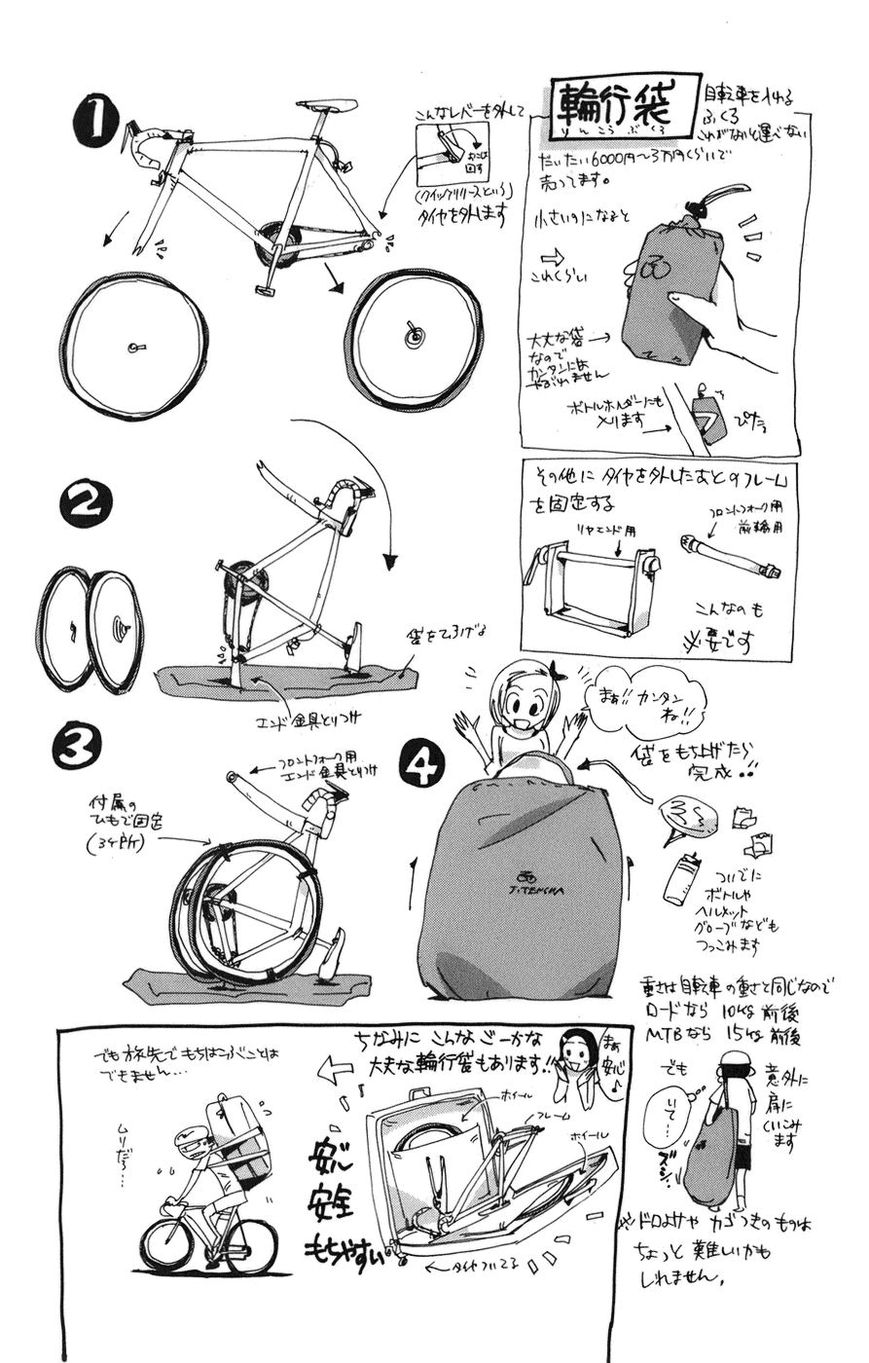 輪行袋
りんこうぶくろ
自転車を入れる
ふくろ
これがないと運べない
だいたい6000円〜3万円くらいで
売ってます。
小さいのになると
これくらい
大丈な袋
なので
カンタンには
やぶれません
ボトルホルダーにも
入ります
ぴたっ
1
こんなレバーを外して
回す
(クイックリリースという)
タイヤを外します
その他に タイヤを外したあとのフレーム
を固定する
リヤエンド用
フロントフォーク用
前輪用
こんなのも
必要です
2
袋をひろげる
エンド金具とりつけ
3
フロントフォーク用
エンド金具とりつけ
付属の
ひもで固定
(3ヶ所)
4
まぁ!! カンタン
ね!!
袋をもち上げたら
完成!!
J:TENSHA
ついでに
ボトルや
ヘルメット
グローブなども
つっこみます
重さは自転車の重さと同じなので
ロードなら 10kg 前後
MTBなら 15kg 前後
でも
いて…
ズシ
意外に
肩に
くいこみ
ます
※ドロよけや カゴつきのものは
ちょっと 難しいかも
しれません。
ちなみに こんな ごーかな
大丈な輪行袋もあります!!
まぁ
安心♪
ホイール
フレーム
ホイール
安心
安全
もちやすい。
←タイヤついてる
でも 旅先で もちはこぶことは
できません…
ムリだろ…